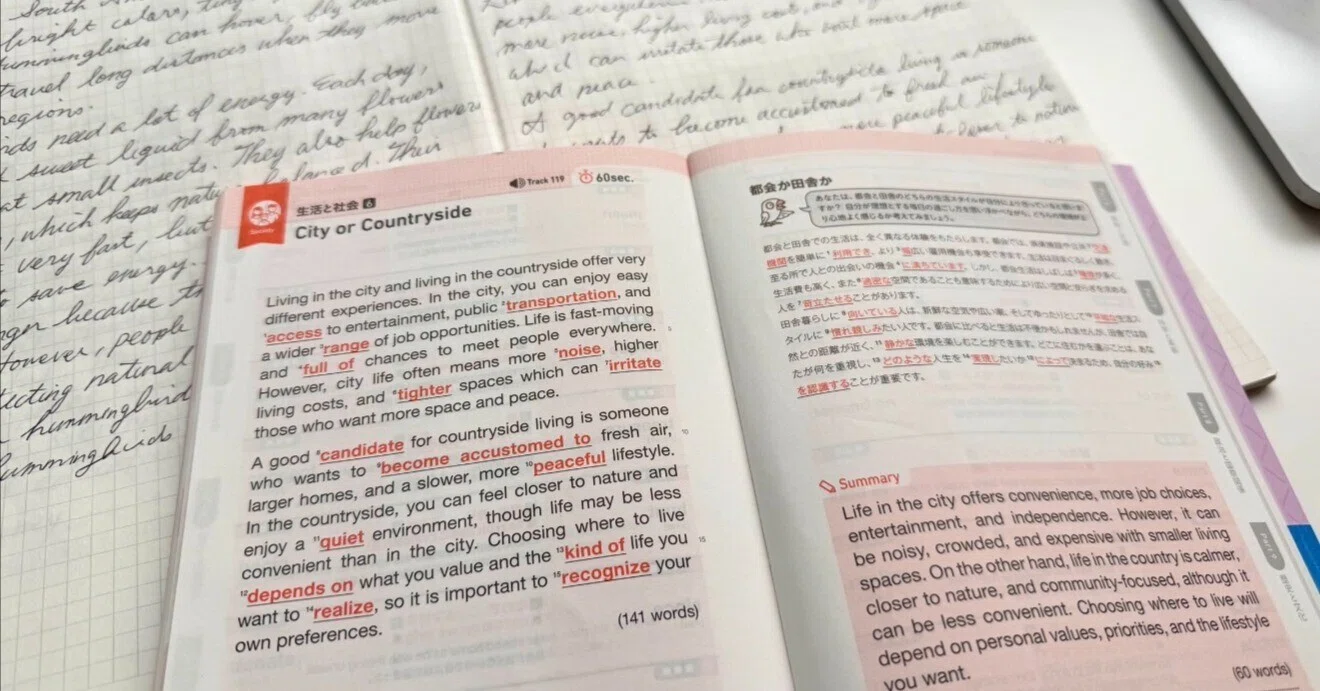 South
bright colors,
hummingbirds can hover, fly
travel long distances when they move
regions.
need a lot of energy. Each day,
sweet liquid from many flowers
at small insects. They also help flowers
, which keeps balanced. Their
very fast, but
to save energy.
because
However, people
natural
hummingbird
people everywhere
more noise, higher living cost, and
which can irritate those who want more space
and peace.
A good candidate for countryside living is someone
to become accustomed to fresh air,
more peaceful lifestyle
to nature
Track 119
60sec.
Society
生活と社会 6
City or Countryside
Living in the city and living in the countryside offer very
different experiences. In the city, you can enjoy easy
1access to entertainment, public 2transportation, and
a wider 3range of job opportunities. Life is fast-moving
and 4full of chances to meet people everywhere.
However, city life often means more 5noise, higher
living costs, and 6tighter spaces which can 7irritate
those who want more space and peace.
A good 8candidate for countryside living is someone
who wants to 9become accustomed to fresh air,
larger homes, and a slower, more 10peaceful lifestyle.
In the countryside, you can feel closer to nature and
enjoy a 11quiet environment, though life may be less
convenient than in the city. Choosing where to live
12depends on what you value and the 13kind of life you
want to 14realize, so it is important to 15recognize your
own preferences.
(141 words)
5
10
15
都会か田舎か
あなたは、都会と田舎のどちらの生活スタイルが自分により合っていると思いま
すか？ 自分が理想とする毎日の過ごし方を思い浮かべながら、どちらの環境がよ
り心地よく感じるか考えてみましょう。
都会と田舎での生活は、全く異なる体験をもたらします。都会では、娯楽施設や公共2交通
機関を簡単に1利用でき、より3幅広い雇用機会も享受できます。生活は目まぐるしく動き、
至る所で人との出会いの機会4に満ちています。しかし、都会生活はしばしば5騒音が多く、
生活費も高く、また6過密な空間であることも意味するためにより広い空間と安らぎを求める
人を7苛立たせることがあります。
田舎暮らしに8向いている人は、新鮮な空気や広い家、そしてゆったりとして10平穏な生活ス
タイルに9慣れ親しみたい人です。都会に比べると生活は不便かもしれませんが、田舎では自
然との距離が近く、11静かな環境を楽しむことができます。どこに住むかを選ぶことは、あな
たが何を重視し、13どのような人生を14実現したいか12によって決まるため、自分の好み15
を認識することが重要です。
Summary
Life in the city offers convenience, more job choices,
entertainment, and independence. However, it can
be noisy, crowded, and expensive with smaller living
spaces. On the other hand, life in the country is calmer,
closer to nature, and community-focused, although it
can be less convenient. Choosing where to live will
depend on personal values, priorities, and the lifestyle
you want.
(60 words)